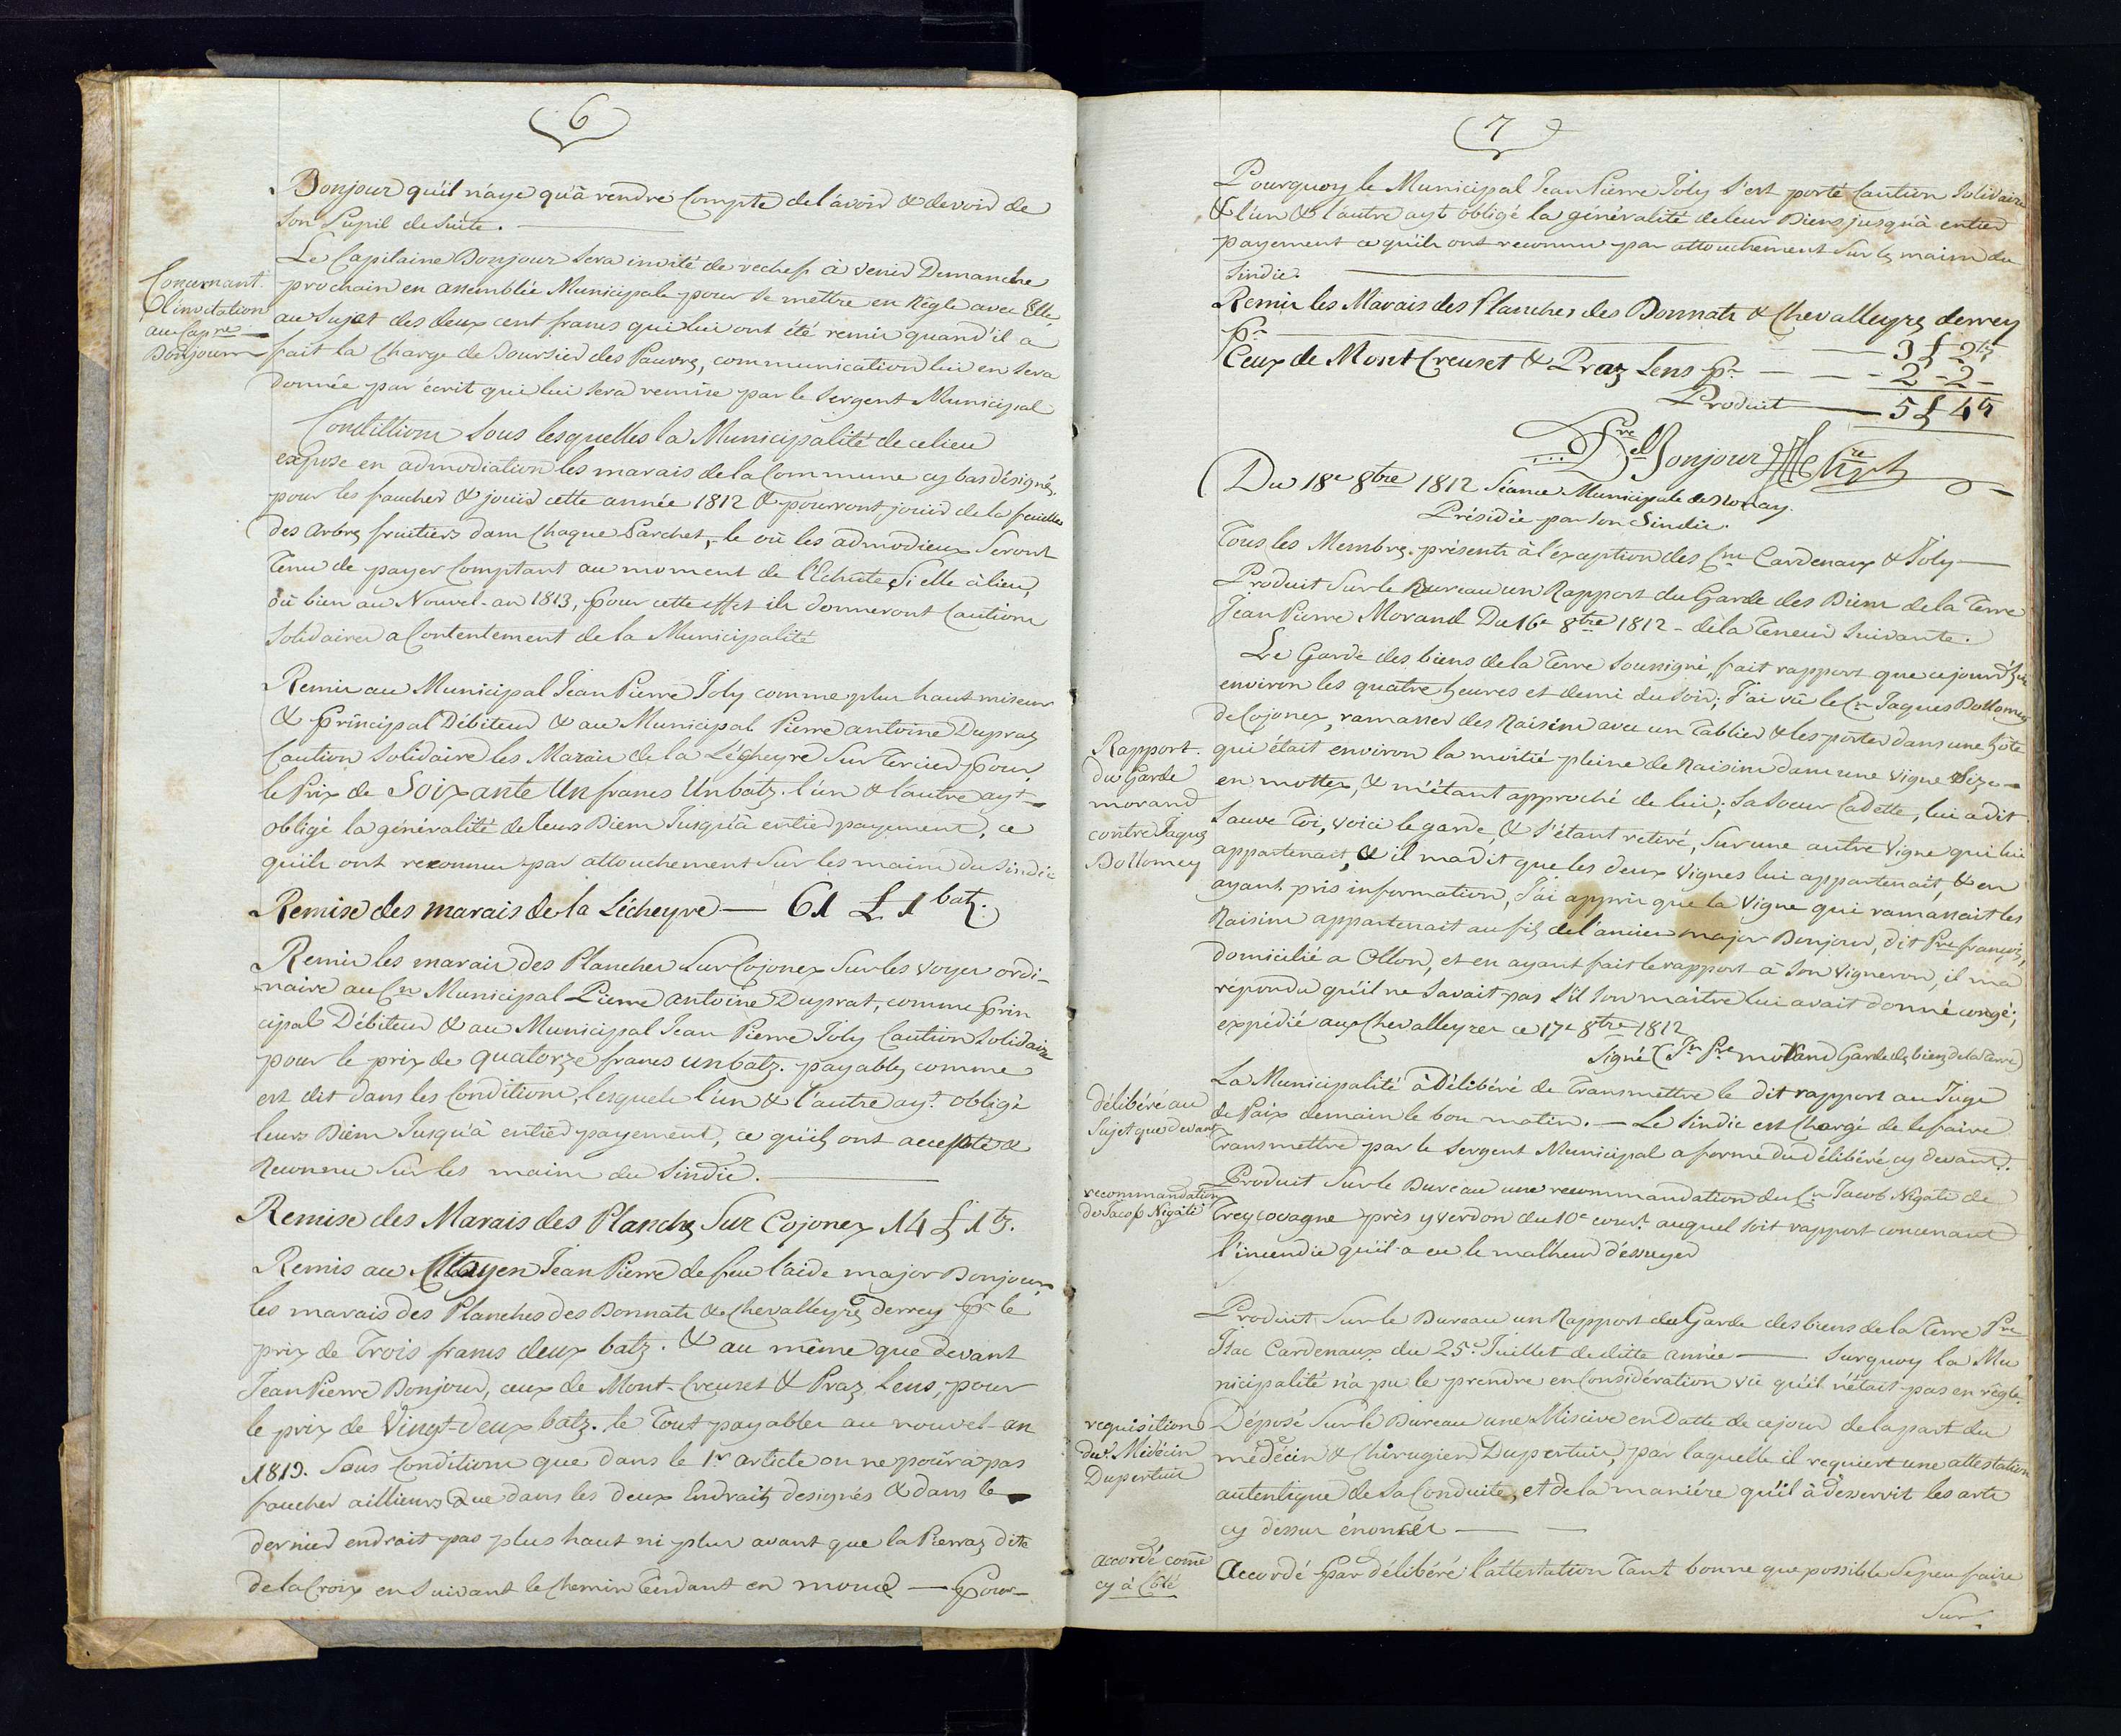 6
Bonjour qu'il n'aye qu'à rendre Compte de l'avoir & devoir de
Son Pupil de Suite.
Concernant
l'invitation
au Capne
Bonjour
Le Capitaine Bonjour Sera invité de rechef à venir Dimanche
prochain en assemblée Municipale pour Se mettre en Règle avec Elle,
au Sujet des deux cent francs qui lui ont été remis quand'il a
fait la Charge de Boursier des Pauvres, communication lui en Sera
donnée par écrit qui lui Sera remise par le Sergent Municipal
Conditions Sous lesquelles la Municipalité de ce lieu
expose en admodiation les marais de la Commune cy bas désignés,
pour les faucher & jouir cette année 1812 & pourront jouir de la feuille
des arbres fruitiers dans Chaque Parchet, le où les admodieux Seront
Tenu de payer Comptant au moment de l'Echute, Si elle à lieu,
où bien au Nouvel-an 1813, pour cette effet ils donneront Cautions
Solidaires a Contentement de la Municipalité
Remis au Municipal Jean Pierre Joly comme plus haut miseur
& principal Débiteur & au Municipal Pierre antoine Dupraz
Caution Solidaire les Marais de la Lécheyre Sur Tercier pour
le Prix de Soixante Un francs Un batz. l'un & l'autre ayt
obligé la généralité de leurs Biens Jusqu'à entier payement, ce
qu'ils ont reconnu par attouchement Sur les mains du Sindic
Remise des marais de la Lécheyre — 61 £ 1 batz.
Remis les marais des Planches Sur Cojonnex Sur les voyes ordi-
naire au Cn Municipal Pierre antoine Duprat, comme prin
cipal Débiteur & au Municipal Jean Pierre Joly Caution Solidaire
pour le prix de quatorze francs un batz. payables comme
est dit dans les Conditions, lesquels l'un & l'autre ayt obligé
leurs Biens Jusqu'à entier payement, ce qu'ils ont accepté &
Reconnu Sur les mains du Sindic.
Remise des Marais des Planches Sur Cojonnex 14 £ 1 bz.
Remis au Citoyen Jean Pierre de feu l'aide major Bonjour,
les marais des Planches des Bonnats & Chevalleyres derrey pr le
prix de Trois francs deux batz. & au même que devant
Jean Pierre Bonjour, ceux de Mont-Creuset & Praz Lens, pour
le prix de Vingt-deux batz. le Tout payables au nouvel-an
1813. Sous Conditions que dans le 1er article on ne poura pas
faucher aillieurs Que dans les deux Endraits designés & dans le
dernier endrait pas plus haut ni plus avant que la Pierraz dite
de la Croix en Suivant le Chemin Tendant en — Pour-
7
Pourquoy le Municipal Jean Pierre Joly S'est porté Caution Solidaire
& l'un & l'autre ayt obligé la généralité de leur Biens jusqu'à entier
payement ce qu'ils ont reconnu par attouchement Sur les mains du
Sindic.
Remis les Marais des Planches des Bonnats & Chevalleyres derrey
pr — 3 £ 2 bz
Ceux de Mont Creuset & Praz Lens pr — 2 - 2 -
Produit — 5 £ 4 bz
Bonjour
Du 18e 8bre 1812 Séance Municipale de Blonay.
Présidée par Son Sindic.
Tous les Membres présents à l'exception des Cns Cardenaux & Joly —
Produit Sur le Bureau un Rapport du Garde des Biens de la Terre
Jean Pierre Morand Du 16e 8bre 1812 - de la Teneur Suivante.
Rapport
du Garde
morand
contre Jaques
Dollomey
Le Garde des biens de la Terre Soussigné, fait rapport que cejourd'hui
environ les quatre heures et demi du Soir; J'ai vû le Cn Jaques Dollomey
de Cojonex, ramasser des Raisins avec un Tablier & les porter dans une hôte
qui était environ la moitié pleine de Raisins dans une Vigne Size
en mottex, & m'étant approché de lui, Sa Soeur Cadette, lui a dit
Sauve Toi, voici le garde, & S'étant retiré, Sur une autre Vigne qui lui
appartenait, & il m'a dit que les deux Vignes lui appartenait, & en
ayant pris information, J'ai appris que la Vigne qui ramassait les
Raisins appartenait au fils de l'ancien major Bonjour, dit Pre françois,
domicilié a Ollon, et en ayant fait le rapport à Son Vigneron, il m'a
répondu qu'il ne Savait pas S'il Son maitre lui avait donné congé;
expédié aux Chevalleyres ce 17e 8bre 1812
Signé Jn Pre morand Garde des biens de la Terre
délibéré au
Sujet que devant
La Municipalité à Délibéré de Transmettre le dit rapport au Juge
de Paix demain le bon matin. — Le Sindic est Chargé de le faire
Transmettre par le Sergent Municipal a forme du délibéré cy devant.
recommandation
de Jacob Nigate
Produit Sur le Bureau une recommandation du Cn Jacob Nigate de
Treycovagne près yverdon du 10e courst. auquel Soit rapport concernant
l'incendie qu'il a eu le malheur d'essuyer
Produit Sur le Bureau un Rapport du Garde des biens de la Terre Pre
Isac Cardenaux du 25e Juillet de ditte année — Surquoy la Mu
nicipalité n'a pu le prendre en Considération vû qu'il n'était pas en règle.
requisition
du Médécin
Dupertuis
Déposé Sur le Bureau une Miscive en Datte de ce jour de la part du
médécin & Chirugien Dupertuis, par laquelle il requiert une attestation
autentique de Sa Conduite, et de la manière qu'il à désservit les arts
cy dessus énoncés —
accordé comē
cy à Coté
Accordé par délibéré l'attestation Tant bonne que possible Se peu faire
Sur